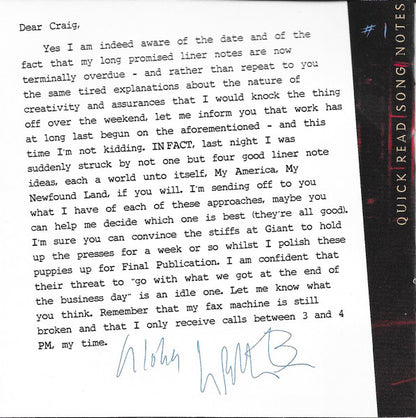 Dear Craig,
Yes I am indeed aware of the date and of the
fact that my long promised liner notes are now
terminally overdue - and rather than repeat to you
the same tired explanations about the nature of
creativity and assurances that I would knock the thing
off over the weekend, let me inform you that work has
at long last begun on the aforementioned - and this
time I'm not kidding. IN FACT, last night I was
suddenly struck by not one but four good liner note
ideas, each a world unto itself, My America, My
Newfound Land, if you will. I'm sending off to you
what I have of each of these approaches, maybe you
can help me decide which one is best (they're all good).
I'm sure you can convince the stiffs at Giant to hold
up the presses for a week or so whilst I polish these
puppies up for Final Publication. I am confident that
their threat to "go with what we got at the end of
the business day" is an idle one. Let me know what
you think. Remember that my fax machine is still
broken and that I only receive calls between 3 and 4
PM, my time.
Aloha
#1
QUICK READ SONG NOTES